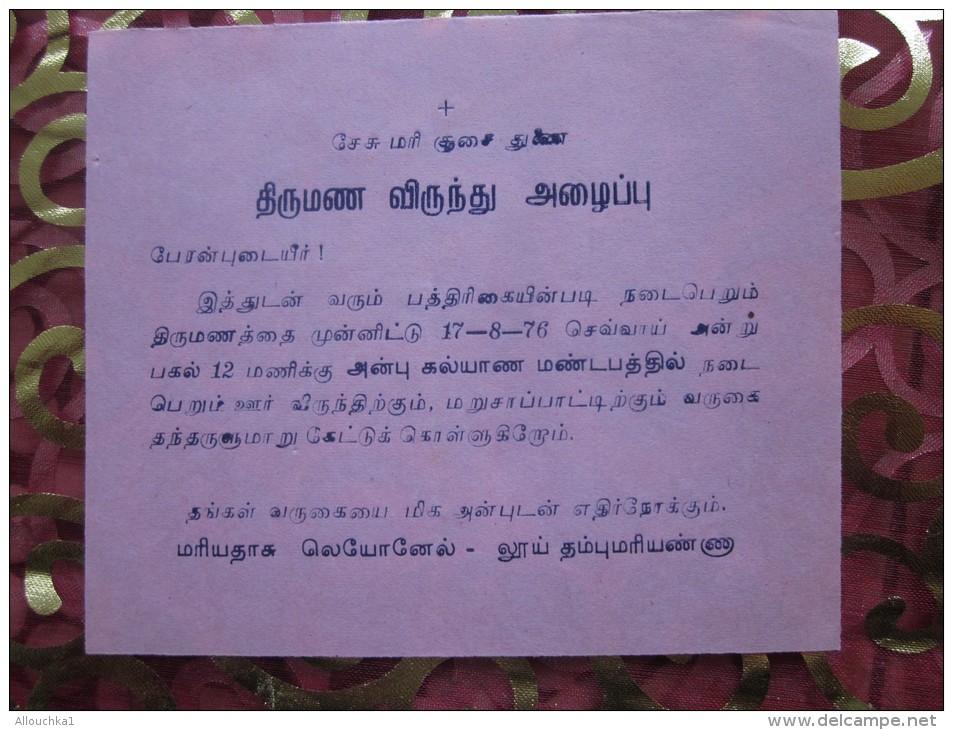 +
சேசு மரி சூசை துணை
திருமண விருந்து அழைப்பு
பேரன்புடையீர் !
இத்துடன் வரும் பத்திரிகையின்படி நடைபெறும்
திருமணத்தை முன்னிட்டு 17—8—76 செவ்வாய் அன்று
பகல் 12 மணிக்கு அன்பு கல்யாண மண்டபத்தில் நடை
பெறும் ஊர் விருந்திற்கும், மறுசாப்பாட்டிற்கும் வருகை
தந்தருளுமாறு கேட்டுக் கொள்ளுகிறோம்.
தங்கள் வருகையை மிக அன்புடன் எதிர்நோக்கும்.
மரியதாசு லெயோனேல் - லூய் தம்புமரியண்ணு
Allouchka1
http://www.delcampe.net